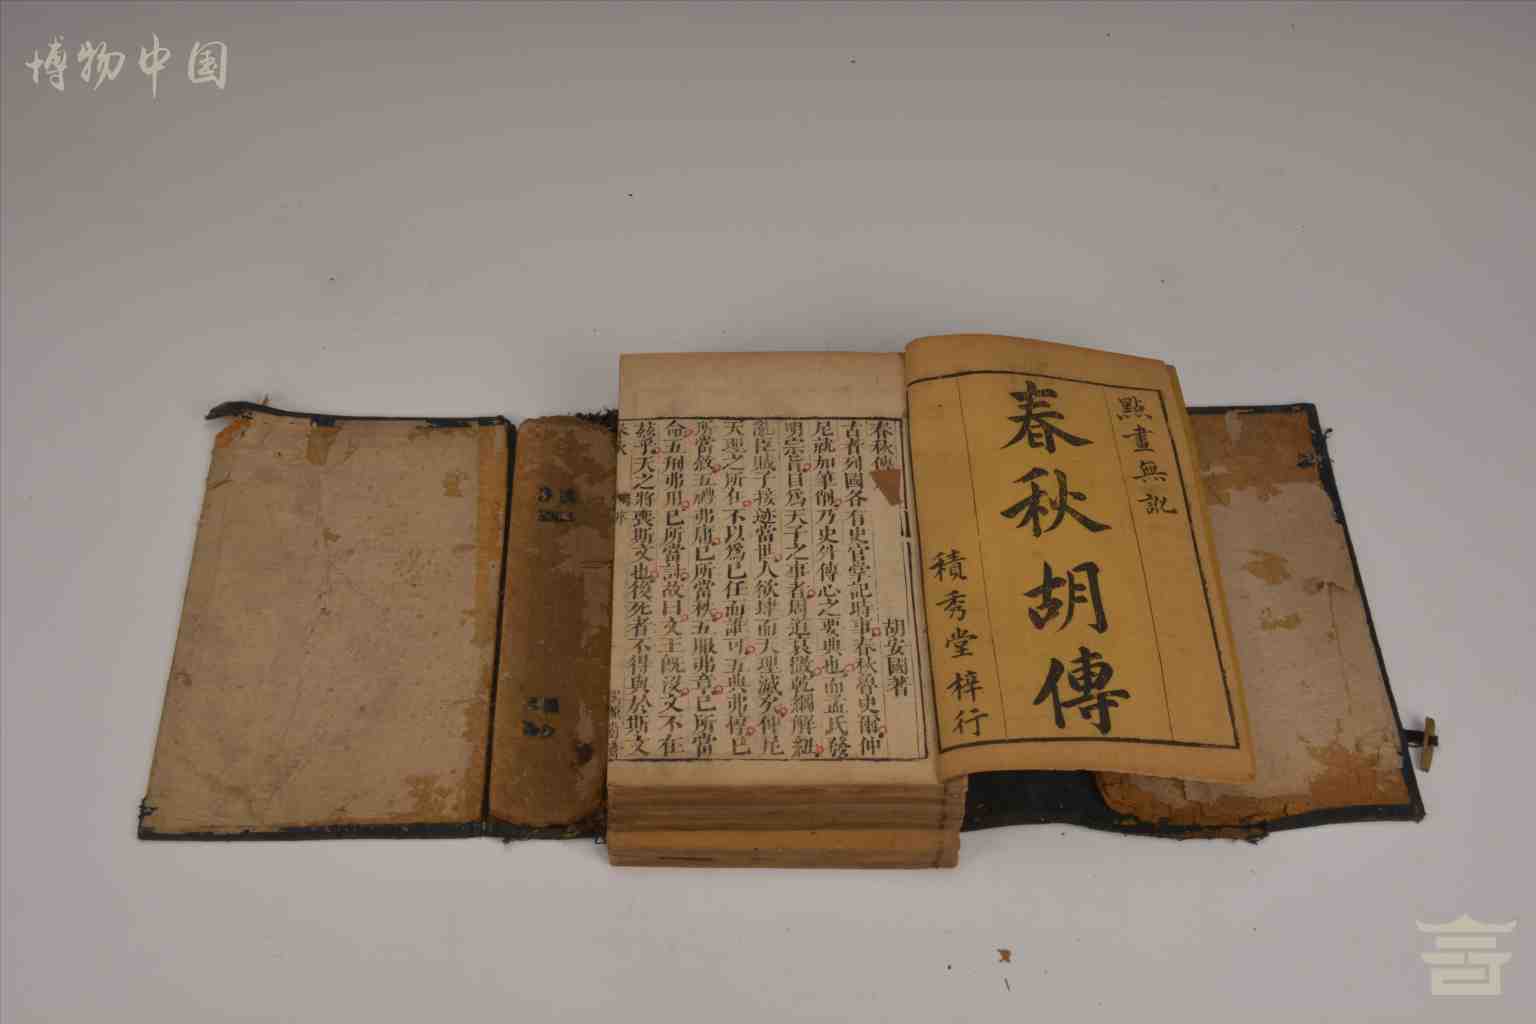 博物中国
點畫無訛
春秋胡傳
積秀堂梓行
春秋傳
胡安國著
古者列國各有史官掌記時事春秋魯史爾仲
尼就加筆削乃史外傳心之要典也而孟氏發
明宗旨目爲天子之事者周道衰微乾綱解紐
亂臣賊子接迹當世人欲肆而天理滅矣仲尼
天理之所在不以爲己任而誰可五典弗惇己
所當敘五禮弗庸己所當秩五服弗章己所當
命五刑弗用己所當討故曰文王既沒文不在
茲乎天之將喪斯文也後死者不得與於斯文